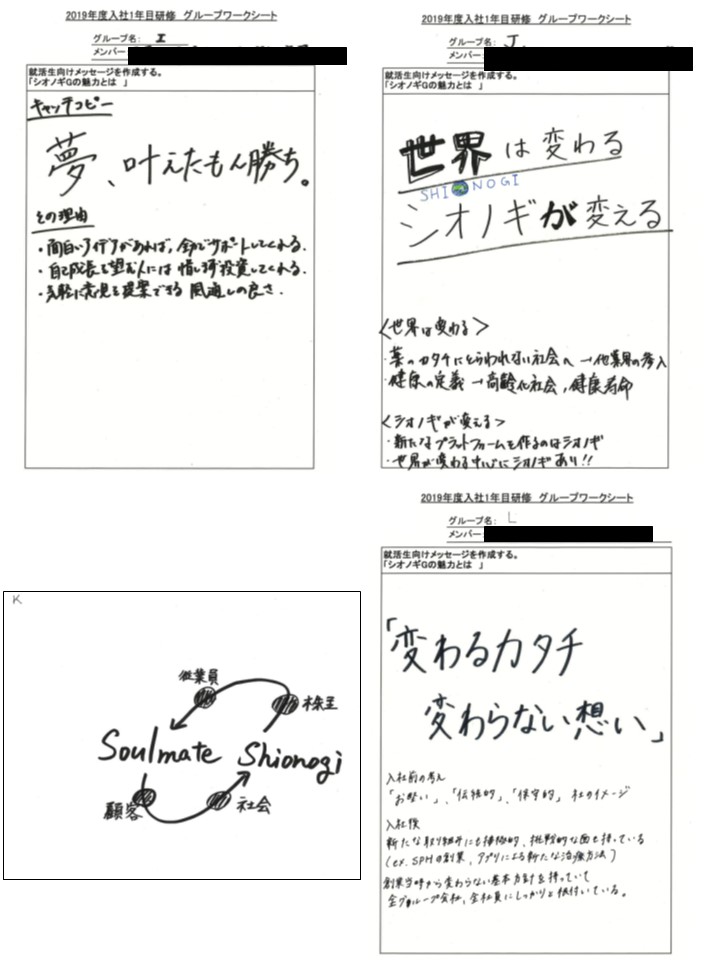 2019年度入社1年目研修 グループワークシート
グループ名: I
メンバー
就活生向けメッセージを作成する。
「シオノギGの魅力とは 」
キャッチコピー
夢、叶えたもん勝ち。
その理由
・面白いアイデアがあれば、全力でサポートしてくれる.
・自己成長を望む人には惜しまず投資してくれる.
・気軽に意見を提案できる風通しの良さ.
2019年度入社1年目研修 グループワークシート
グループ名: J
メンバー
就活生向けメッセージを作成する。
「シオノギGの魅力とは 」
世界は変わる
SHIONOGI
シオノギが変える
<世界は変わる>
・薬のカタチにとらわれない社会へ → 他業界の参入
・健康の定義 → 高齢化社会, 健康寿命
<シオノギが変える>
・新たなプラットフォームを作るのはシオノギ
・世界が変わる中心にシオノギあり!!
K
従業員
株主
Soulmate Shionogi
顧客
社会
2019年度入社1年目研修 グループワークシート
グループ名: L
メンバー:
就活生向けメッセージを作成する。
「シオノギGの魅力とは 」
「変わるカタチ
変わらない想い」
入社前の考え
「お堅い」、「伝統的」、「保守的」 社のイメージ
入社後
新たな取り組みにも積極的、挑戦的な面も持っている
(ex. SPHの創業, アプリによる新たな治療方法)
創業当時から変わらない基本方針を持っていて
全グループ会社, 全社員にしっかりと根付いている。